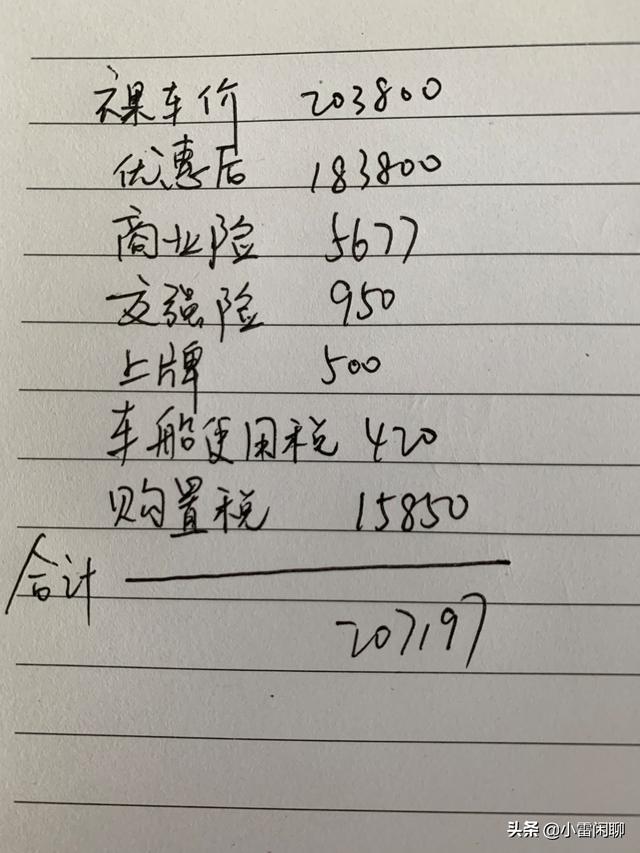 裸车价 203800
优惠后 183800
商业险 5677
交强险 950
上牌 500
车船使用税 420
购置税 15850
合计
207197
头条 @小雷闲聊